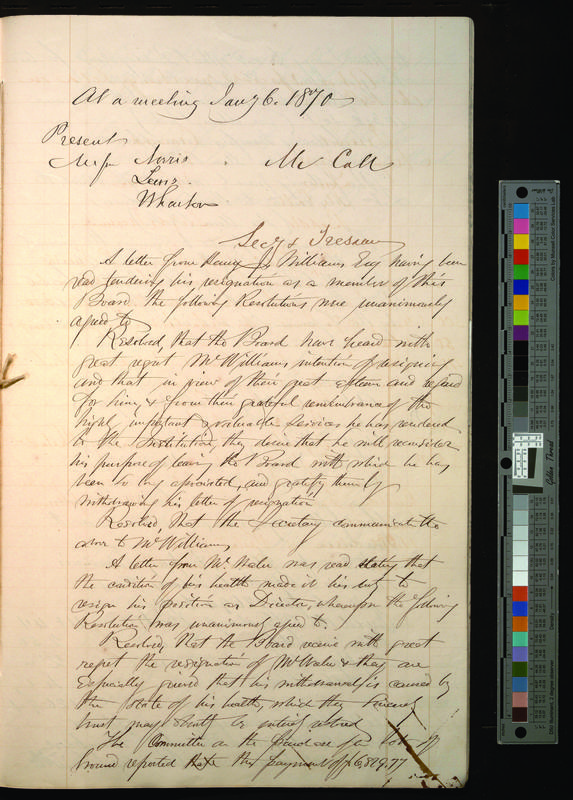 At a meeting Jany 6. 1870
Present
Messrs Norris . Mc Call
Lewis.
Wharton
Secy & Treasurer
A letter from Henry J. Williams Esq having been
read tendering his resignation as a member of this
Board. The following Resolutions were unanimously
agreed to
Resolved, that the Board have heard with
great regret Mr Williams intention of resigning
and that in view of their great esteem and regard
for him, & from their grateful remembrance of the
high, important & valuable services he has rendered
to the Institution, they desire that he will reconsider
his purpose of leaving the Board with which he has
been so long associated, and gratify them by
withdrawing his letter of resignation
Resolved, that the Secretary communicate the
above to Mr Williams,
A letter from Mr. was read stating that
the condition of his health made it his duty to
resign his position as Director, whereupon the following
Resolution was unanimously agreed to.
Resolved, that the Board receive with great
regret the resignation of Mr & they are
Especially grieved that his withdrawal is caused by
the state of his health, which they sincerely
trust may shortly be entirely restored
The Committee on the purchase of a lot of
Ground reported that the payment of $6,819.77